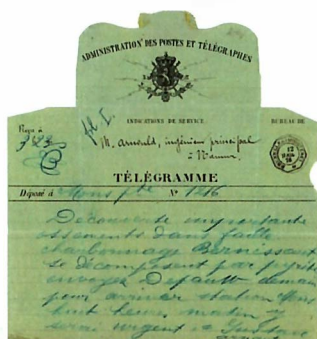 ADMINISTRATION DES POSTES ET TÉLÉGRAPHES
INDICATIONS DE SERVICE.
BUREAU DE
Reçu à
M. Arnould, ingénieur principal
à Namur
TÉLÉGRAMME
Déposé à Mons Nº 1216
Découverte importante
ossements dans faille
charbonnage Bernissart
se décomposent par pyrite
envoyez Depauw demain
pour arriver station Mons
huit heures matin y
serai urgent = Gustave